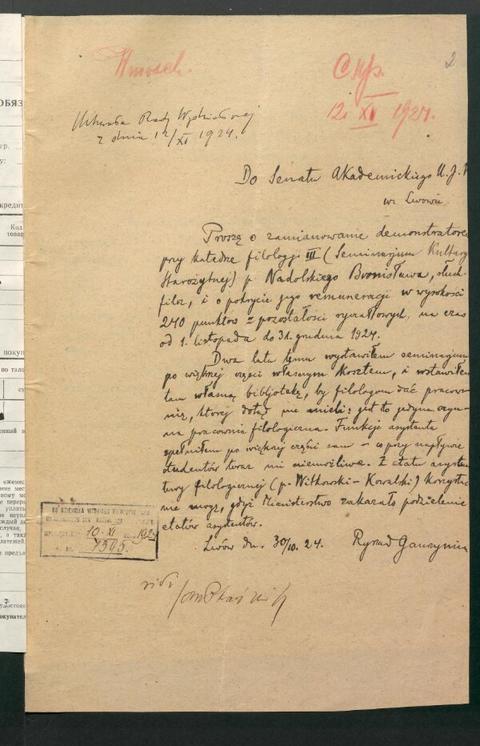 Wniosek.
2
12 XI 1924.
Uchwała Rady Wydziałowej
z dnia 12/XI 1924.
Do Senatu Akademickiego U. J. K
we Lwowie
Proszę o zamianowanie demonstratorem
przy katedrze filologji III (Seminarjum Kultury
Starożytnej) p. Nadolskiego Bronisława, słuch.
filoz., i o pokrycie jego remuneracji w wysokości
240 punktów z pozostałości na czas
od 1. listopada do 31. grudnia 1924.
Dwa lata temu wystawiłem seminarjum
po większej części własnym kosztem, i wstawiłem
tam własną bibljotekę, by filologom dać pracow-
nię, której dotąd nie mieli; jest to jedyna czyn-
na pracownia filologiczna. Funkcje asystenta
spełniałem po większej części sam – co przy napływie
studentów teraz jest niemożliwe. Z etatu asysten-
tury filologicznej (p. Witkowski - Kowalski) korzystać
nie mogę, gdyż Ministerstwo zakazało podzielenie
etatów asystentów.
Lwów dn. 30/10. 24. Ryszard Gansyniec
10 XI 192
4505
vidi
ОБЯЗ
кредит
Код
товар
покуп